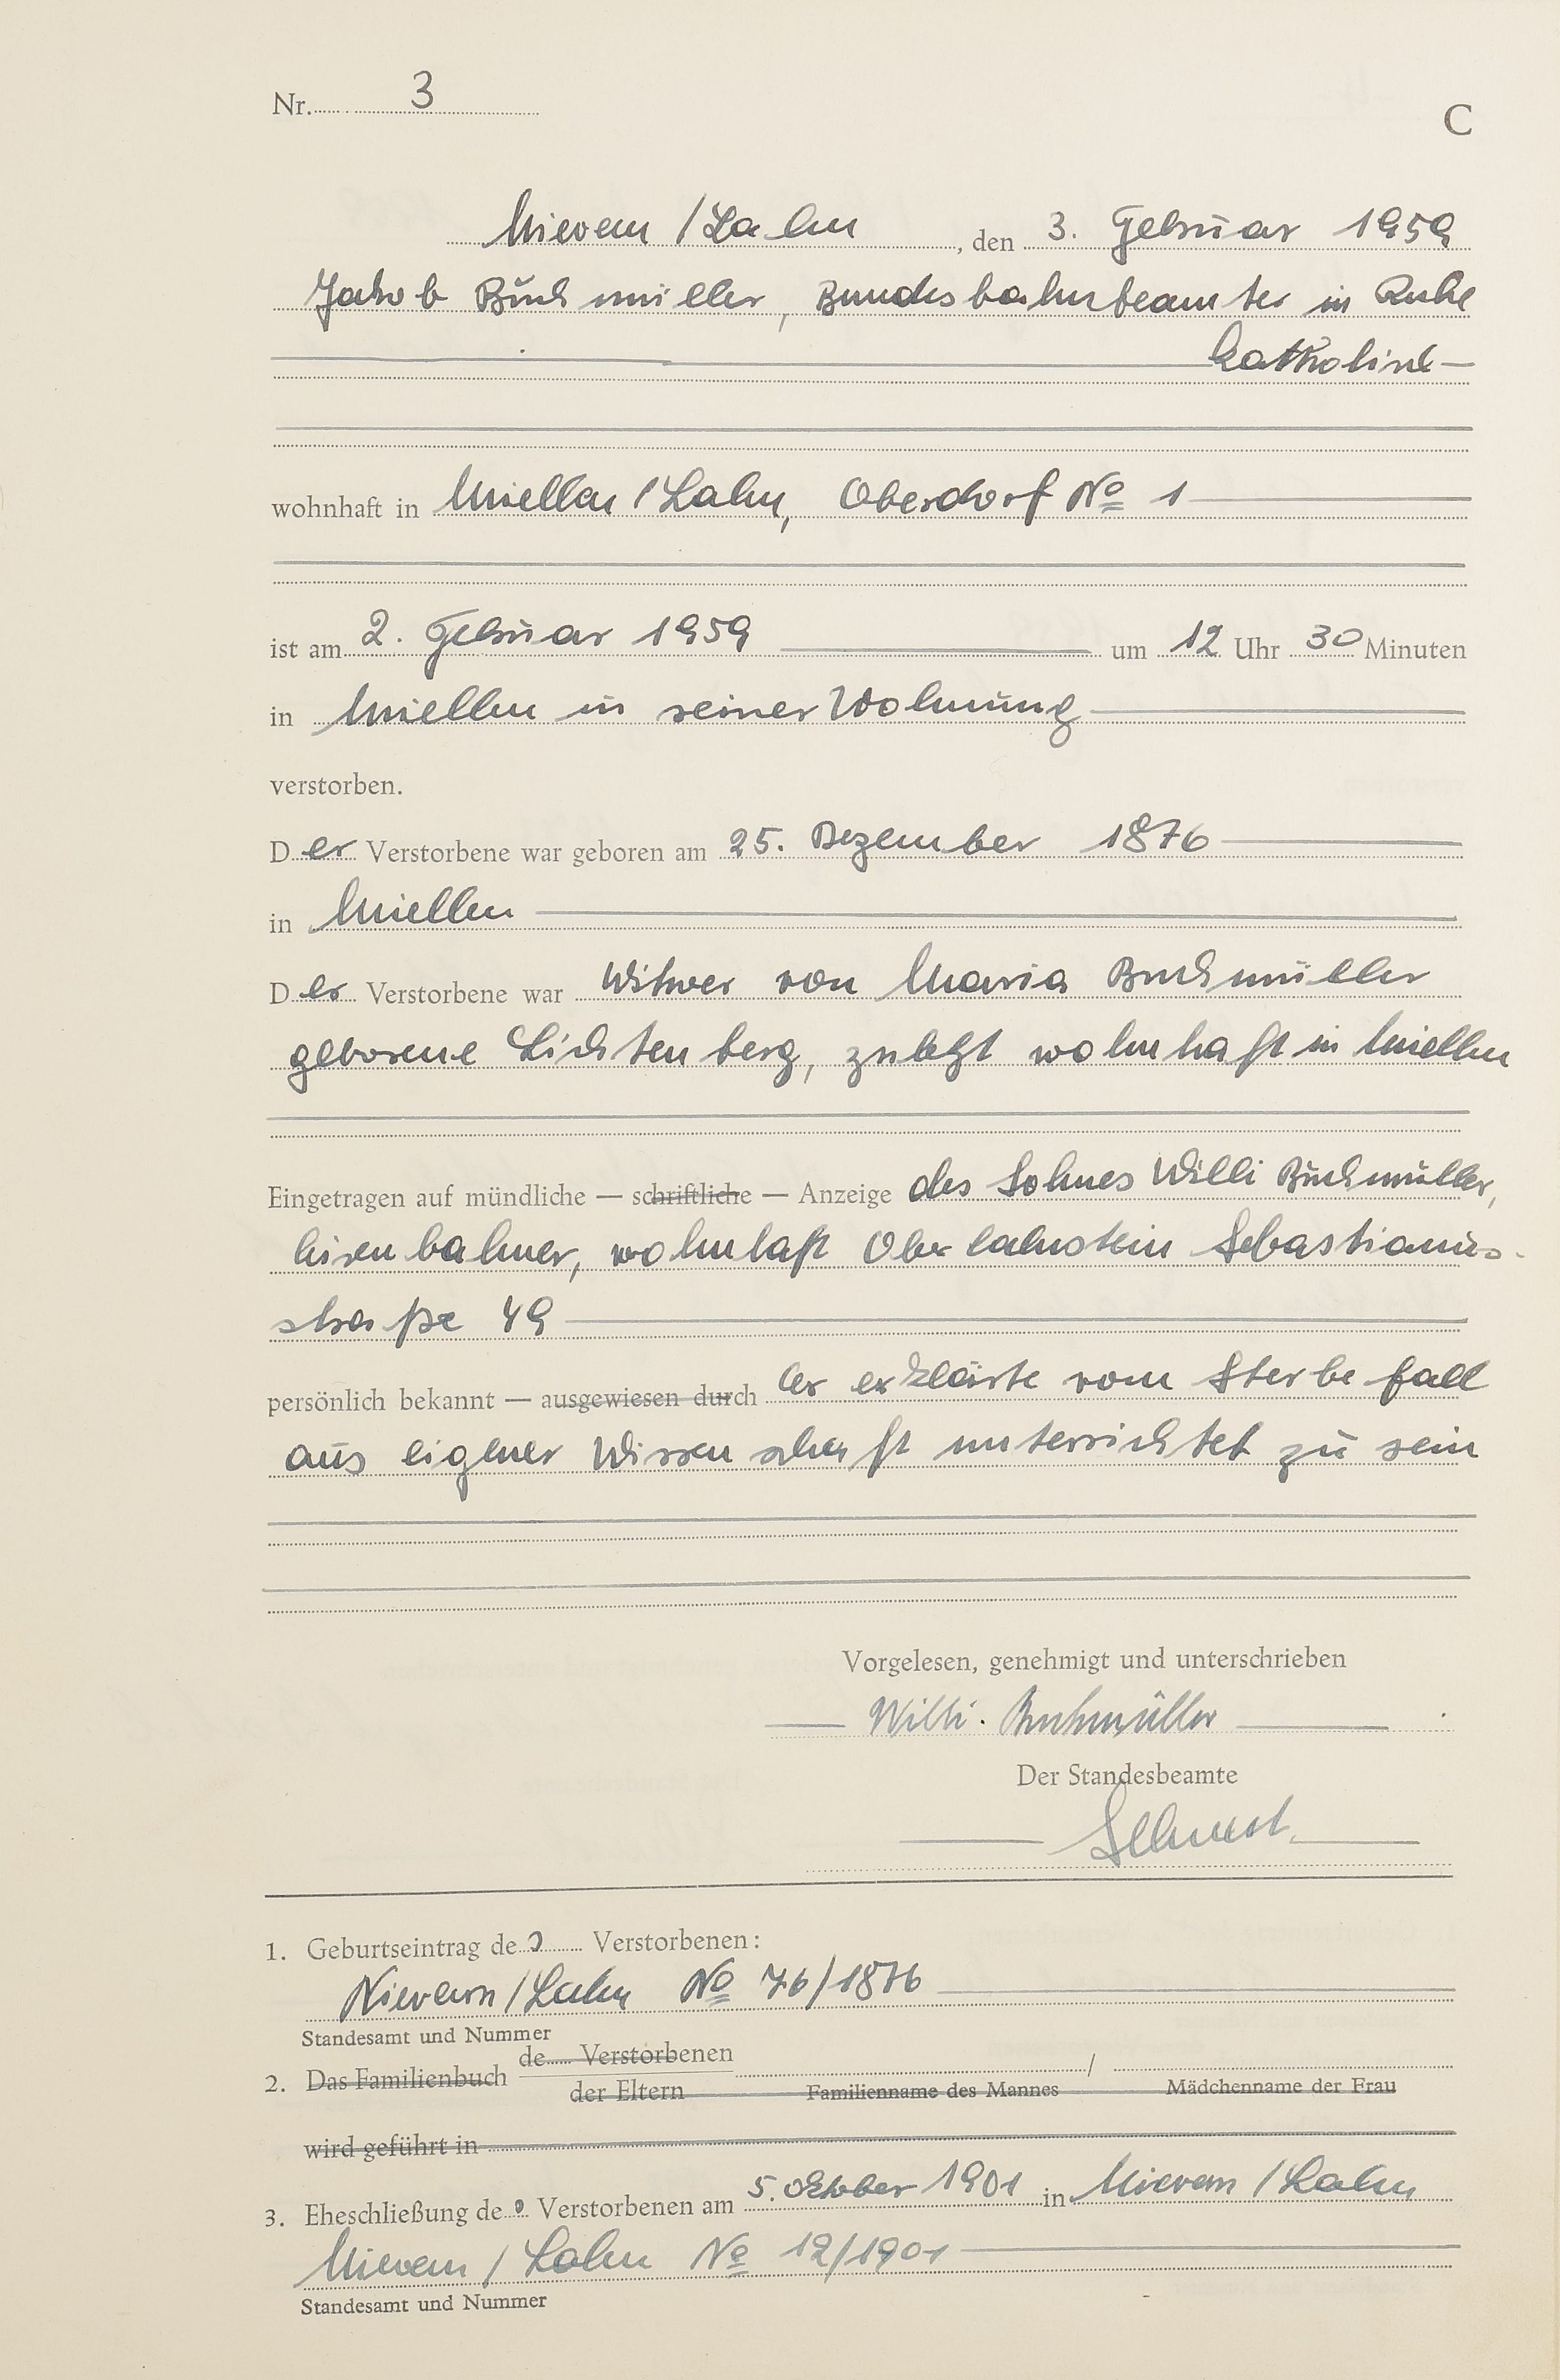 Nr. 3
C
Nievern / Lahn, den 3. Februar 1959
Jakob Buchmüller, Bundesbahnbeamter in Ruhe
katholisch
wohnhaft in Miellen / Lahn, Oberdorf No 1
ist am 2. Februar 1959 um 12 Uhr 30 Minuten
in Miellen in seiner Wohnung
verstorben.
Der Verstorbene war geboren am 25. Dezember 1876
in Miellen
Der Verstorbene war Witwer von Maria Buchmüller
geborene Lichtenberg, zuletzt wohnhaft in Miellen
Eingetragen auf mündliche — schriftliche — Anzeige des Sohnes Willi Buchmüller,
Eisenbahner, wohnhaft Oberlahnstein Sebastianus-
straße 49
persönlich bekannt — ausgewiesen durch Er erklärte vom Sterbefall
aus eigner Wissenschaft unterrichtet zu sein
Vorgelesen, genehmigt und unterschrieben
Willi Buchmüller
Der Standesbeamte
1. Geburtseintrag des Verstorbenen:
Nievern / Lahn No 76/1876
Standesamt und Nummer
de Verstorbenen
2. Das Familienbuch /
der Eltern Familienname des Mannes Mädchenname der Frau
wird geführt in
3. Eheschließung des Verstorbenen am 5. Oktober 1901 in Nievern / Lahn
Nievern / Lahn No 12/1901
Standesamt und Nummer